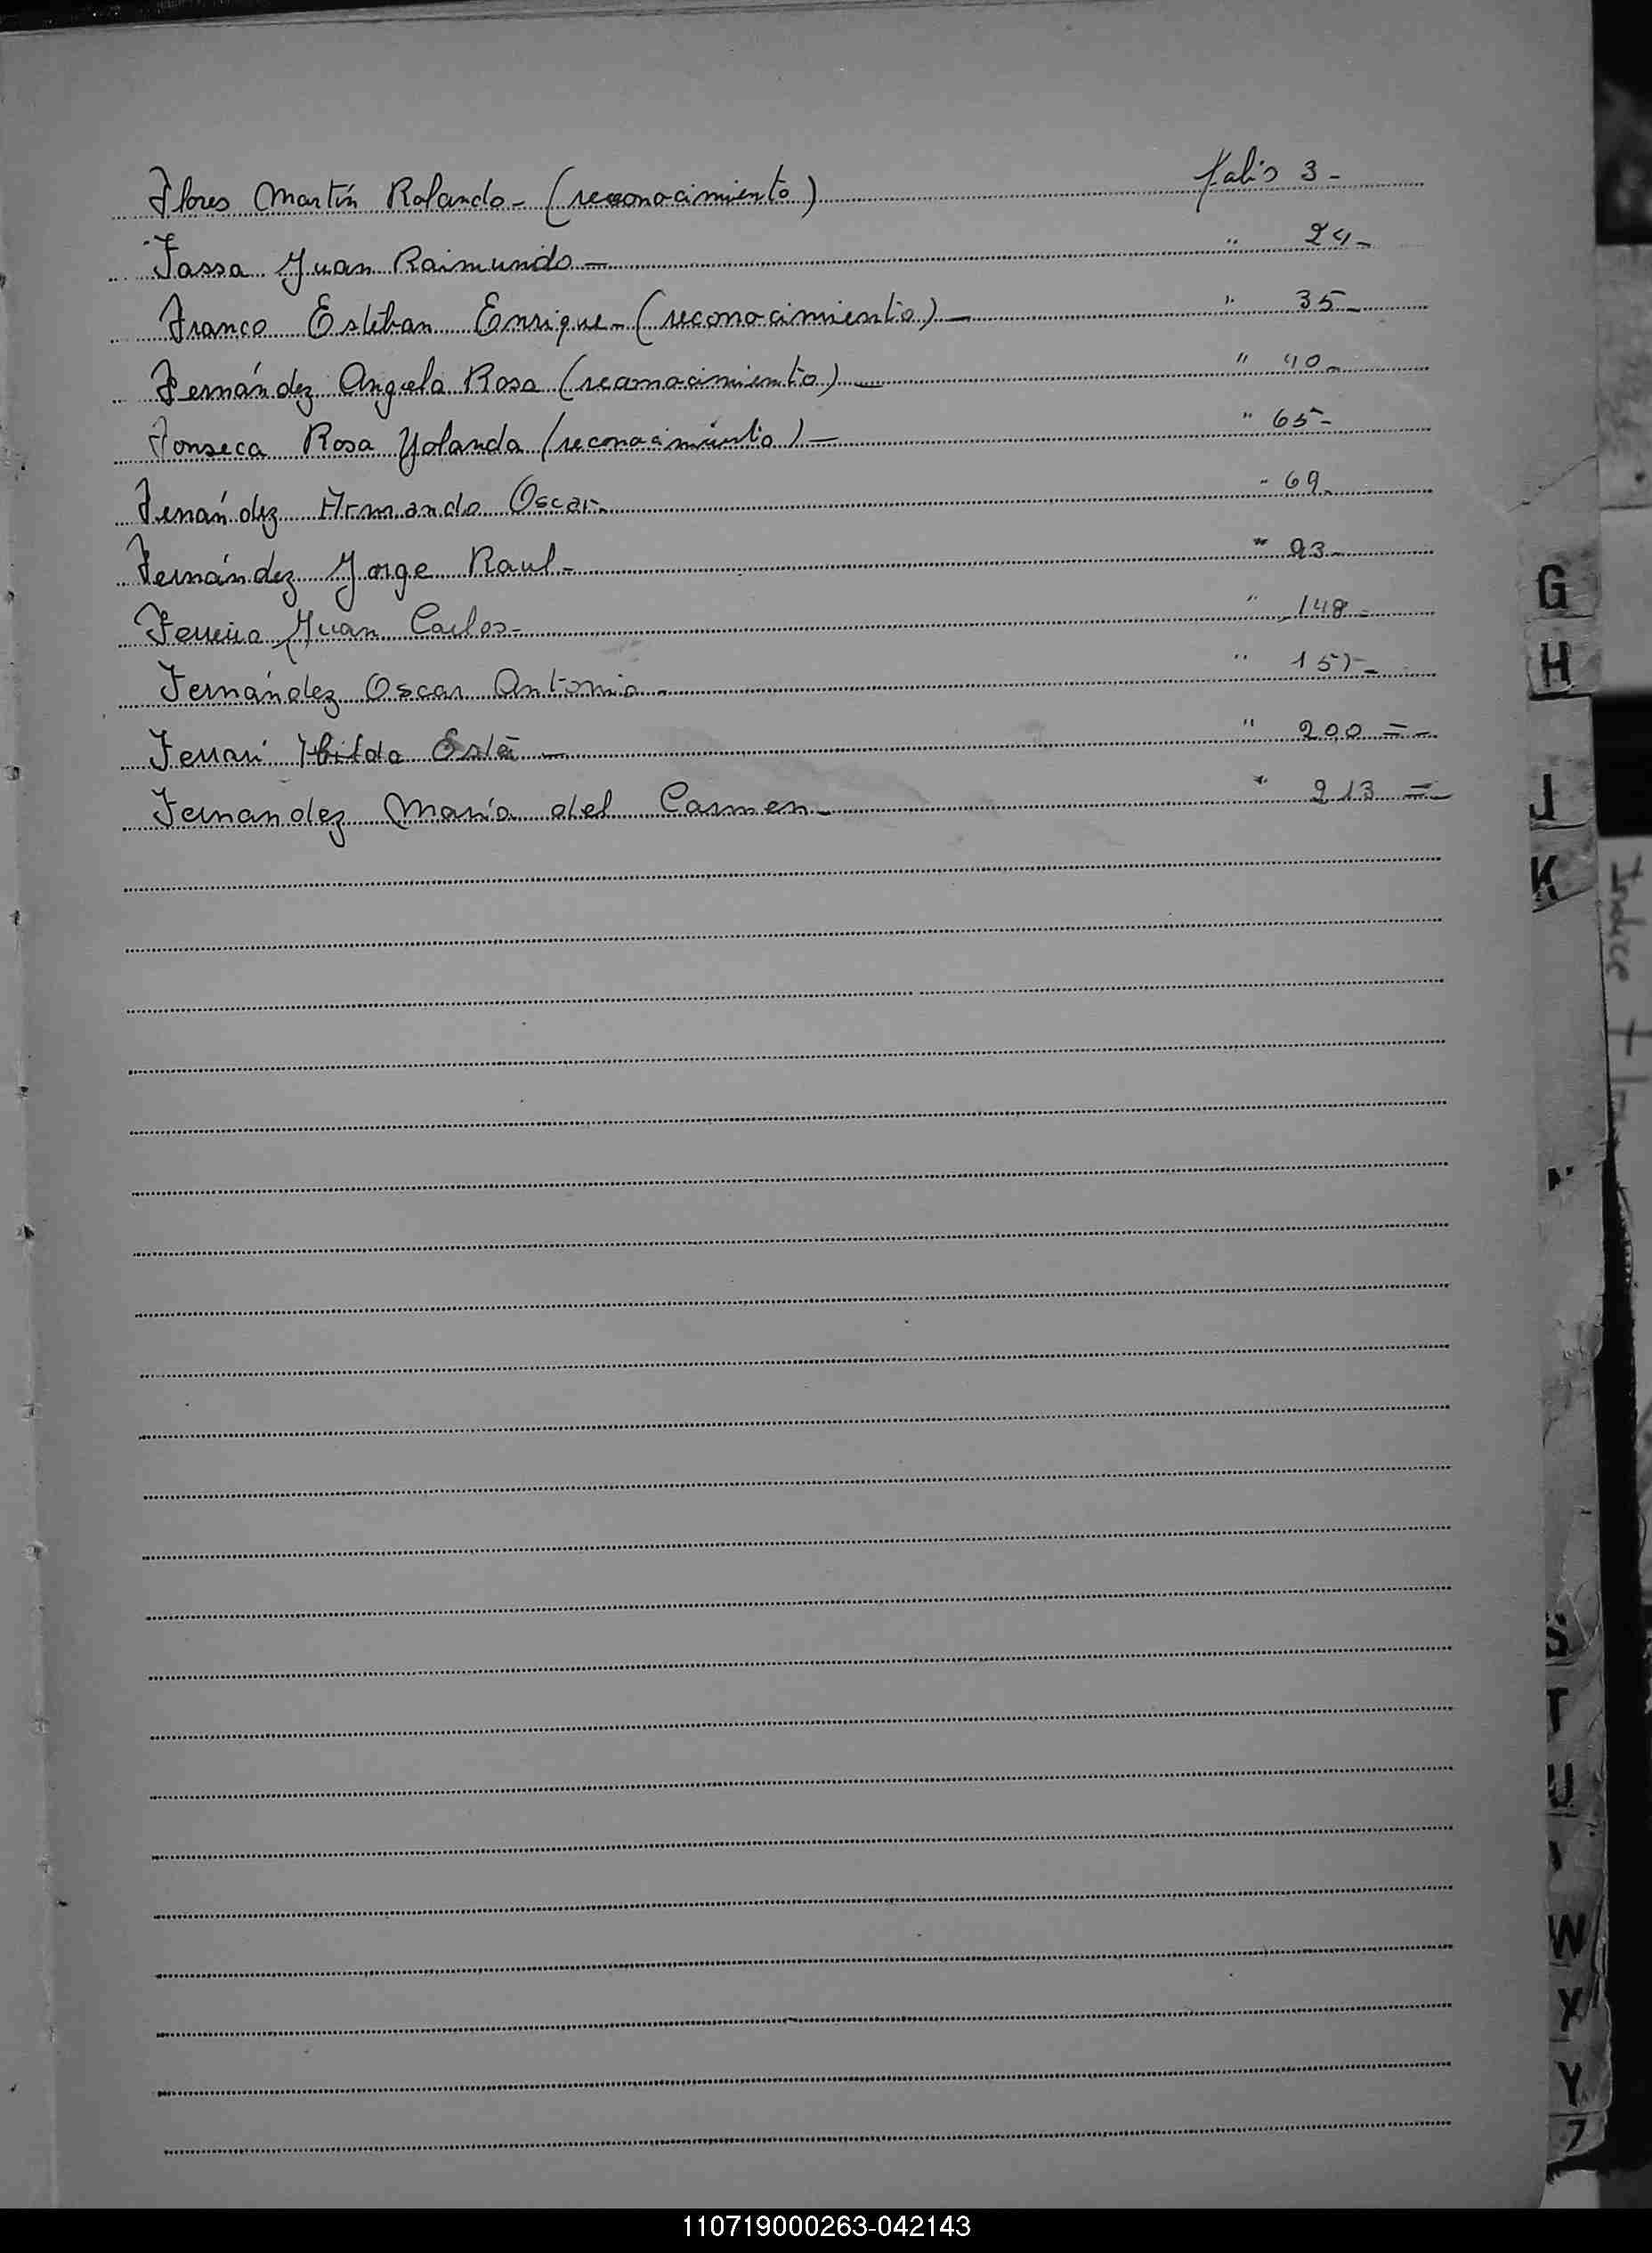 Flores Martín Rolando - (reconocimiento) folio 3 -
Fassa Juan Raimundo - " 24 -
Franco Esteban Enrique - (reconocimiento) - " 35 -
Fernández Angela Rosa (reconocimiento) - " 40 -
Fonseca Rosa Yolanda (reconocimiento) - " 65 -
Fernández Armando Oscar - " 69 -
Fernández Jorge Raul - " 93 -
Ferreira Juan Carlos - " 148 -
Fernández Oscar Antonio - "
Ferrari Hilda - " 200 = -
Fernandez María del Carmen - " 213 = -
G
H
J
K
Indice
S
T
U
W
X
Y
Z
110719000263-042143